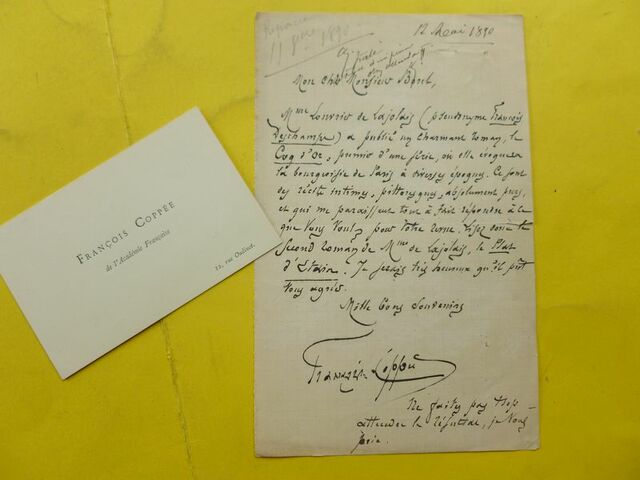 FRANÇOIS COPPÉE
de l'Académie Française
12, rue Oudinot.
12 Mai 1890
11
1890
Mon cher Monsieur
Mme Louvrier de Lajolais (pseudonyme François
Deschamps) a publié un charmant roman, le
Coq d'Or, premier d'une série, où elle évoquera
la bourgeoisie de Paris à diverses époques. Ce sont
des récits intimes, pittoresques, absolument purs,
et qui me paraissent tout à fait répondre à ce
que vous voulez pour votre revue. Lisez donc le
second roman de Mme de Lajolais, le Plat
d'Etain. Je serais très heureux qu'il fût
tous agréé.
Mille bons souvenirs
François Coppée
Ne faites pas trop
attendre la réponse, je vous
prie.